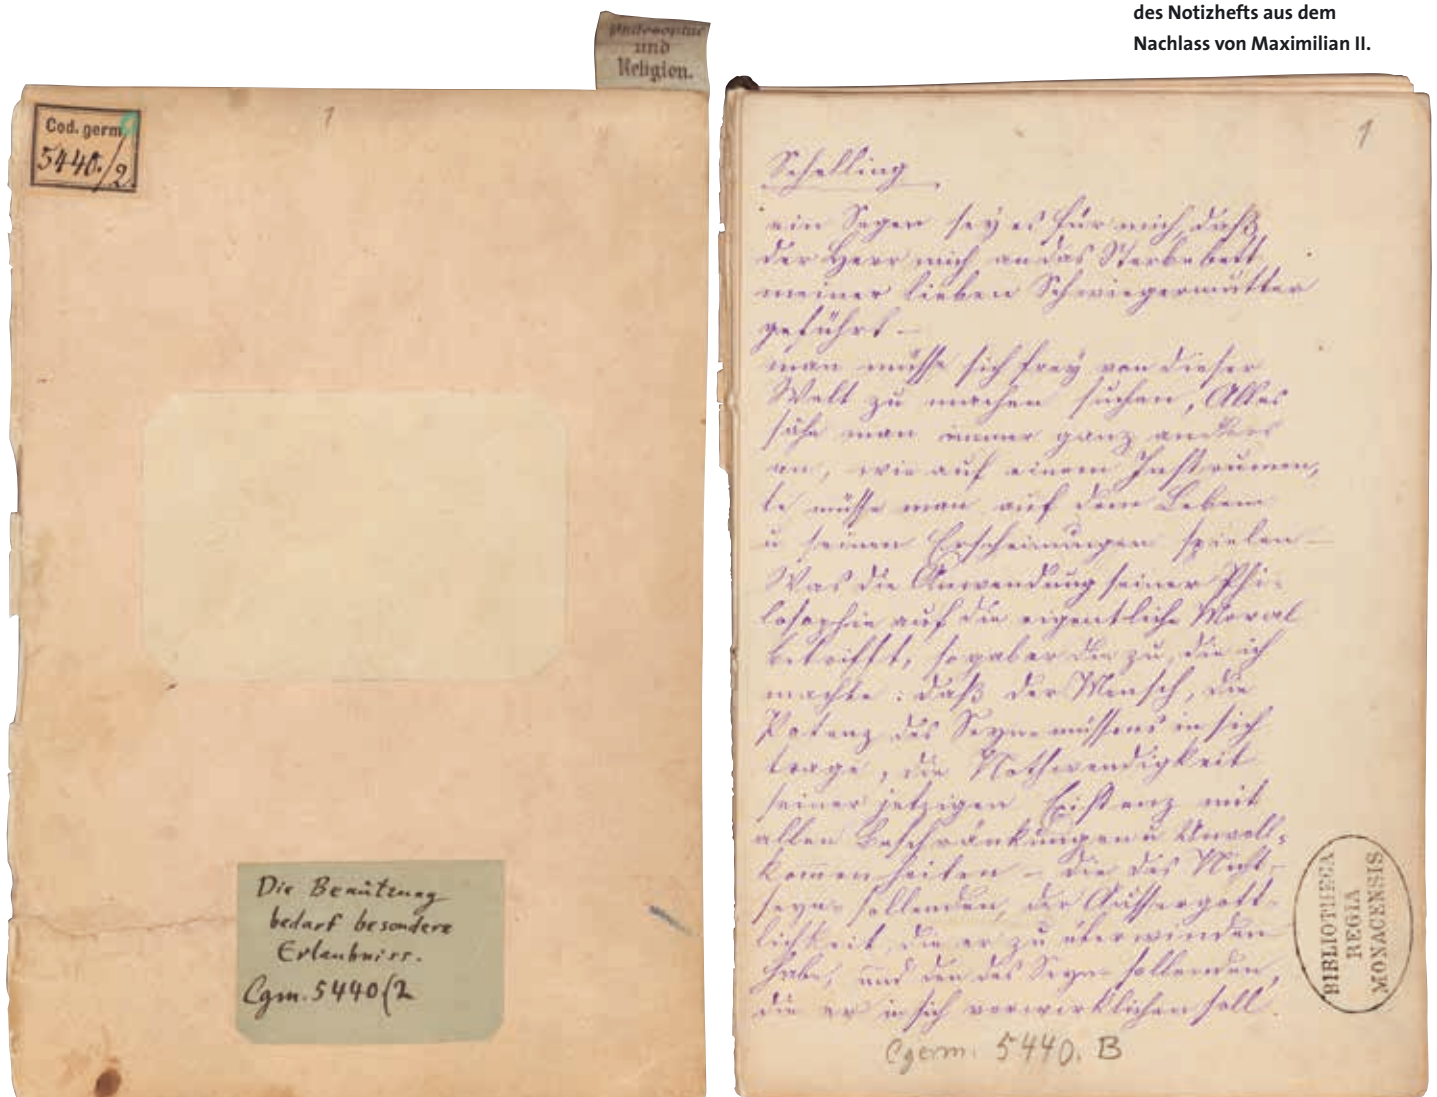 des Notizhefts aus dem
Nachlass von Maximilian II.
Philosophie
und
Religion.
Cod. germ.
5440./2.
1
Die Benützung
bedarf besondere
Erlaubniss.
Cgm. 5440(2
1
Schelling
ein Segen sey es für mich, daß
der Herr mich an das Sterbebett
meiner lieben Schwiegermutter
geführt –
man müsse sich frey von dieser
Welt zu machen suchen, Alles
sähe man immer ganz anders
an, wie auf einem Instrumen-
te müsse man auf dem Leben
u seinen Erscheinungen spielen –
Was die Anwendung seiner Phi-
losophie auf die eigentliche Moral
betrifft, so gab er die zu, die ich
machte: daß der Mensch, die
Potenz des Seyns müssens in sich
trage, die Nothwendigkeit
seiner jetzigen Existenz mit
allen Beschränkungen u Unvoll-
kommenheiten – die des Nicht-
seyn-sollenden, der Aussergött-
lichkeit, die er zu überwinden
habe, und den des Seyn-sollenden,
die er in sich verwirklichen soll.
BIBLIOTHECA
REGIA
MONACENSIS
Cgerm. 5440. B